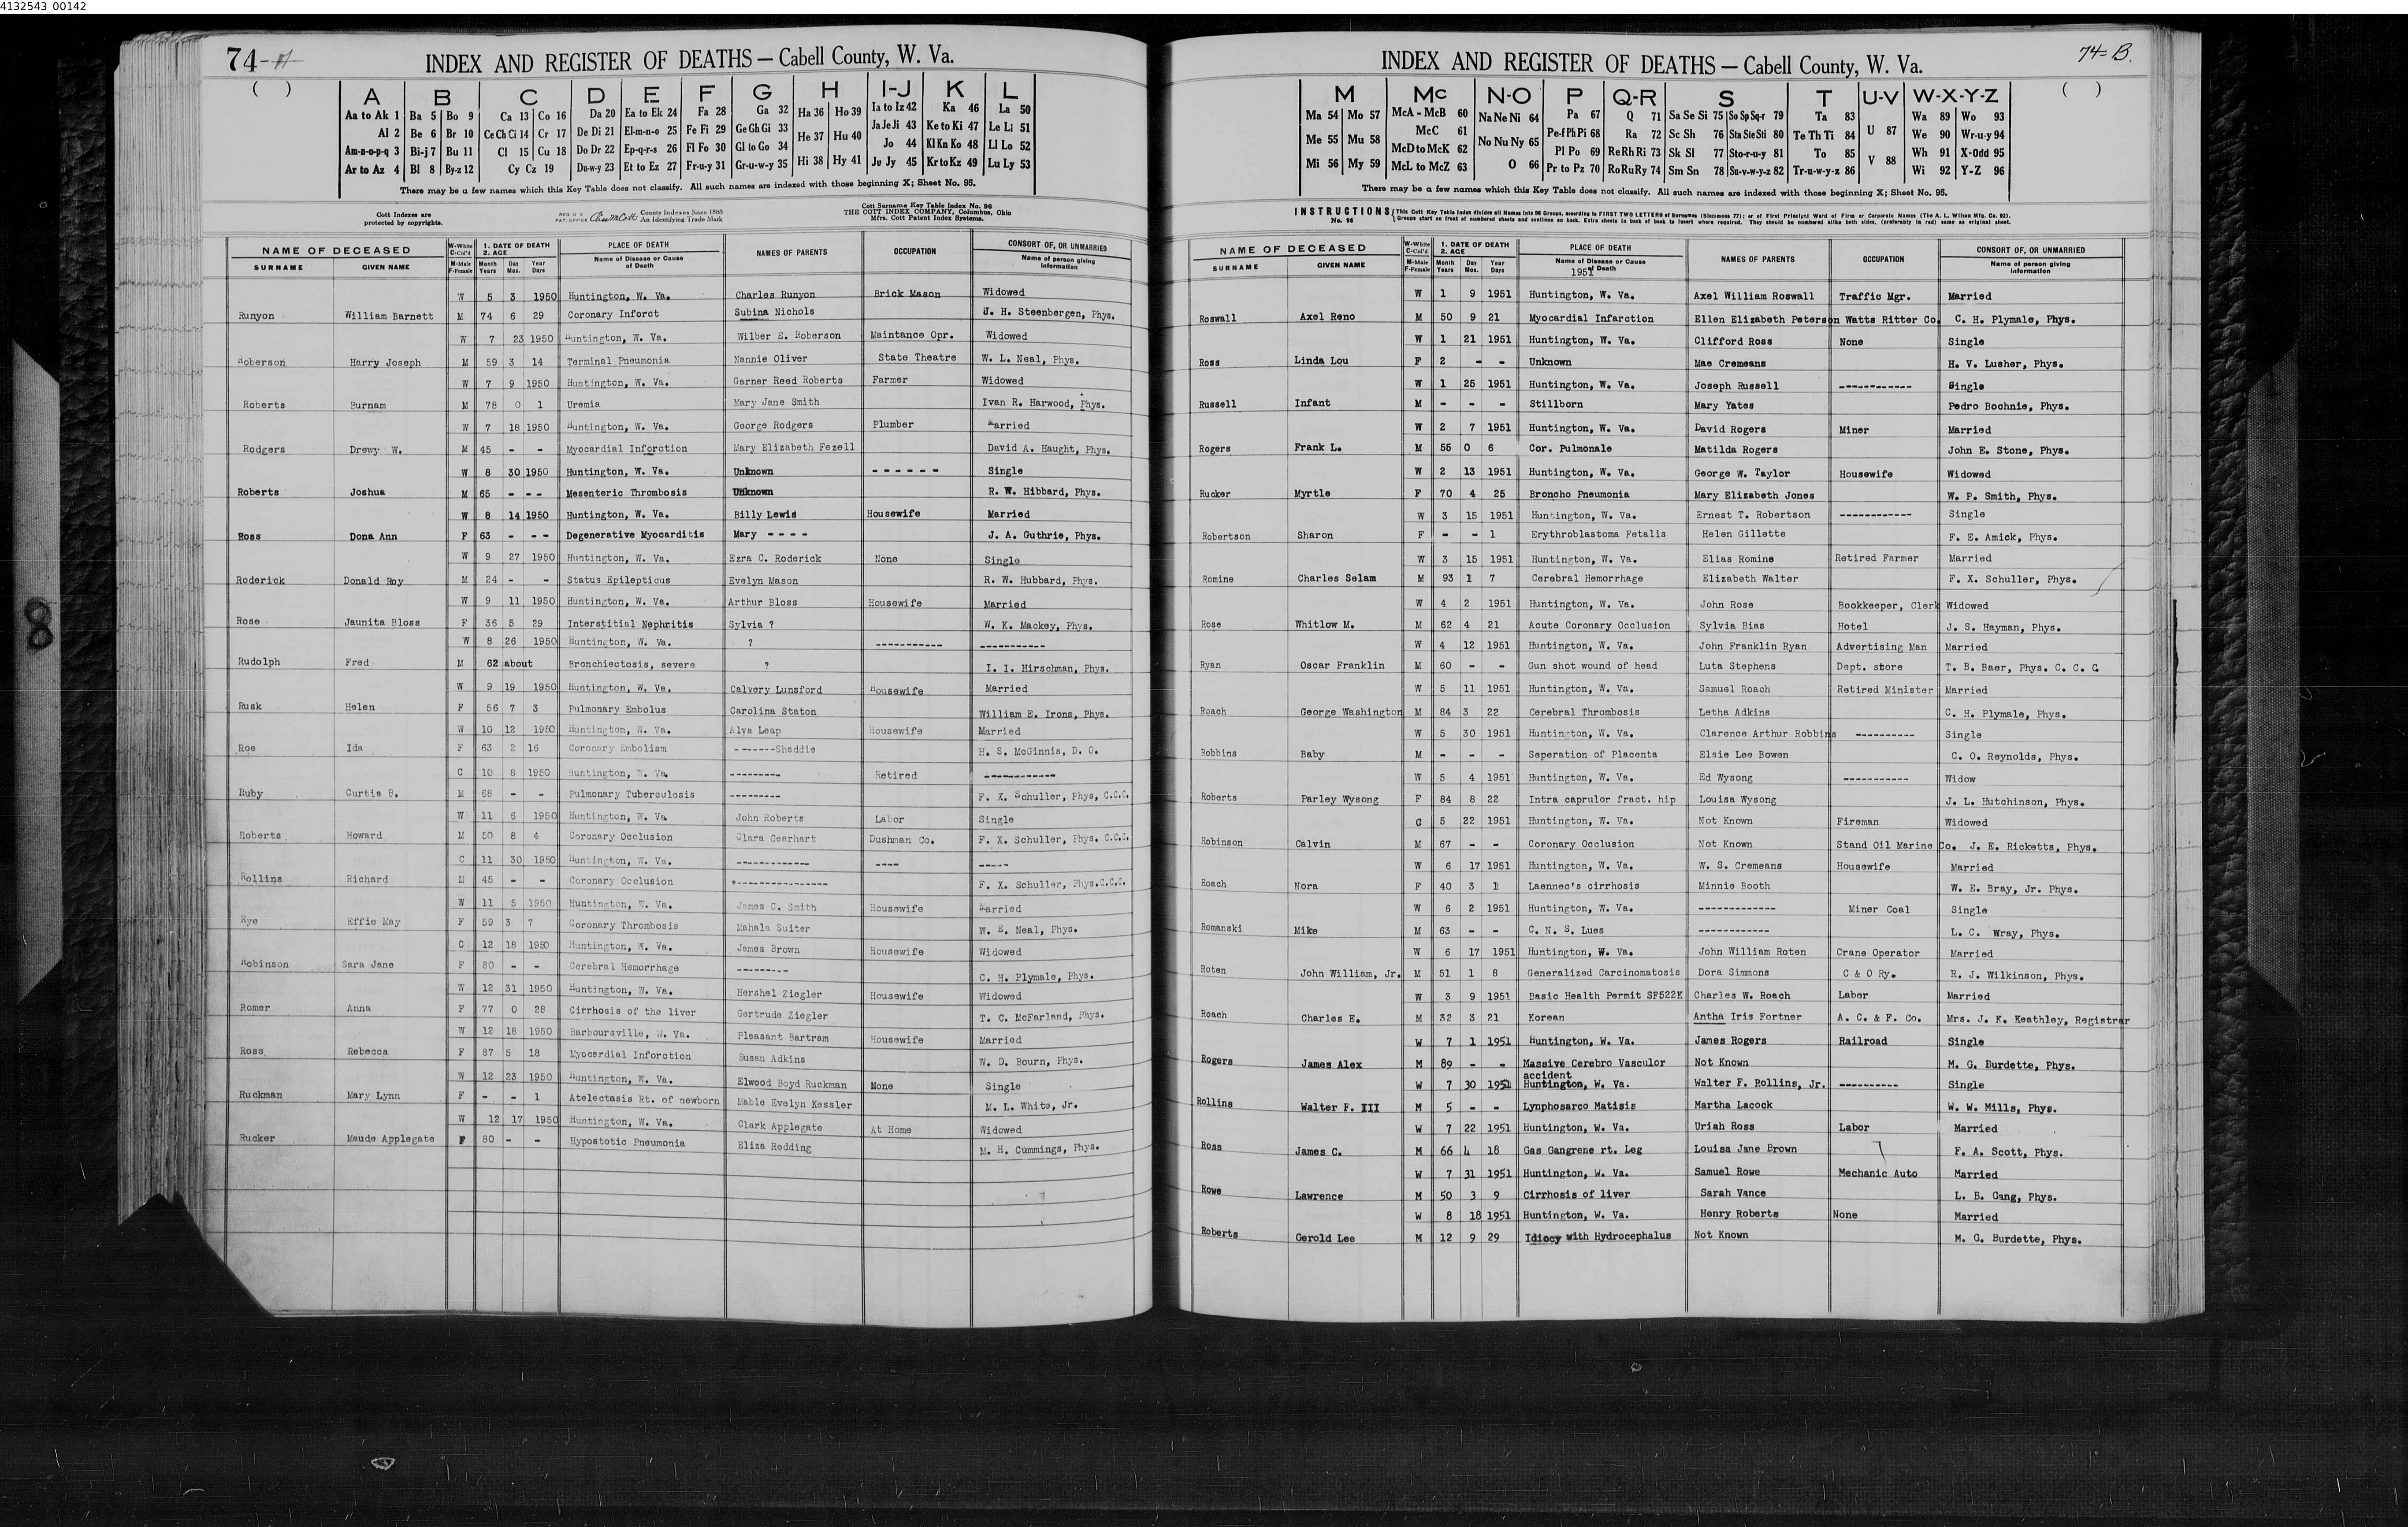 4132543_00142
74-A
INDEX AND REGISTER OF DEATHS — Cabell County, W. Va.
( )
A B C D E F G H I-J K L
Aa to Ak 1 Ba 5 Bo 9 Ca 13 Co 16 Da 20 Ea to Ek 24 Fa 28 Ga 32 Ha 36 Ho 39 Ia to Iz 42 Ka 46 La 50
Al 2 Be 6 Br 10 Ce Ch Ci 14 Cr 17 De Di 21 El-m-n-o 25 Fe Fi 29 Ge Gh Gi 33 He 37 Hu 40 Ja Je Ji 43 Ke to Ki 47 Le Li 51
Am-n-o-p-q 3 Bi-j 7 Bu 11 Cl 15 Cu 18 Do Dr 22 Ep-q-r-s 26 Fl Fo 30 Gl to Go 34 Jo 44 Kl Kn Ko 48 Ll Lo 52
Ar to Az 4 Bl 8 By-z 12 Cy Cz 19 Du-w-y 23 Et to Ez 27 Fr-u-y 31 Gr-u-w-y 35 Hi 38 Hy 41 Ju Jy 45 Kr to Kz 49 Lu Ly 53
There may be a few names which this Key Table does not classify. All such names are indexed with those beginning X; Sheet No. 95.
Cott Indexes are protected by copyrights.
REG. U S PAT. OFFICE County Indexes Since 1888 An Identifying Trade Mark
Cott Surname Key Table Index No. 96
THE COTT INDEX COMPANY, Columbus, Ohio
Mfrs. Cott Patent Index Systems.
NAME OF DECEASED W-White C-Col'd 1. DATE OF DEATH 2. AGE PLACE OF DEATH NAMES OF PARENTS OCCUPATION CONSORT OF, OR UNMARRIED
SURNAME GIVEN NAME M-Male F-Female Month Years Day Mos. Year Days Name of Disease or Cause of Death Name of person giving information
W 5 3 1950 Huntington, W. Va. Charles Runyon Brick Mason Widowed
Runyon William Barnett M 74 6 29 Coronary Inforct Subina Nichols J. H. Steenbergen, Phys.
W 7 23 1950 Huntington, W. Va. Wilber E. Roberson Maintance Opr. Widowed
Roberson Harry Joseph M 59 3 14 Terminal Pneumonia Nannie Oliver State Theatre W. L. Neal, Phys.
W 7 9 1950 Huntington, W. Va. Garner Reed Roberts Farmer Widowed
Roberts Burnam M 78 0 1 Uremia Mary Jane Smith Ivan R. Harwood, Phys.
W 7 18 1950 Huntington, W. Va. George Rodgers Plumber Married
Rodgers Drewy W. M 45 - - Myocardial Inforction Mary Elizabeth Fezell David A. Haught, Phys.
W 8 30 1950 Huntington, W. Va. Unknown - - - - - - Single
Roberts Joshua M 65 - - - Mesenteric Thrombosis Unknown R. W. Hibbard, Phys.
W 8 14 1950 Huntington, W. Va. Billy Lewis Housewife Married
Ross Dona Ann F 63 - - - Degenerative Myocarditis Mary - - - - J. A. Guthrie, Phys.
W 9 27 1950 Huntington, W. Va. Ezra C. Roderick None Single
Roderick Donald Roy M 24 - - Status Epilepticus Evelyn Mason R. W. Hubbard, Phys.
W 9 11 1950 Huntington, W. Va. Arthur Bloss Housewife Married
Rose Jaunita Bloss F 36 5 29 Interstitial Nephritis Sylvia ? W. K. Mackey, Phys.
W 8 26 1950 Huntington, W. Va. ? ----------- -----------
Rudolph Fred M 62 about Bronchiectosis, severe ? I. I. Hirschman, Phys.
W 9 19 1950 Huntington, W. Va. Calvery Lunsford Housewife Married
Rusk Helen F 56 7 3 Pulmonary Embolus Carolina Staton William E. Irons, Phys.
W 10 12 1950 Huntington, W. Va. Alva Leap Housewife Married
Roe Ida F 63 2 16 Coronary Embolism -------Shaddie H. S. McGinnis, D. O.
C 10 8 1950 Huntington, W. Va. --------- Retired ------------
Ruby Curtis B. M 68 - - Pulmonary Tuberculosis --------- F. X. Schuller, Phys, C.C.C.
W 11 6 1950 Huntington, W. Va John Roberts Labor Single
Roberts Howard M 50 8 4 Coronary Occlusion Clara Gearhart Dushman Co. F. X. Schuller, Phys. C.C.C.
C 11 30 1950 Huntington, W. Va. ------------- ---- -----
Rollins Richard M 45 - - Coronary Occlusion ----------------- F. X. Schuller, Phys.C.C.C.
W 11 5 1950 Huntington, W. Va. James C. Smith Housewife Married
Rye Effie May F 59 3 7 Coronary Thrombosis Mahala Suiter W. E. Neal, Phys.
C 12 18 1950 Huntington, W. Va. James Brown Housewife Widowed
Robinson Sara Jane F 80 - - Cerebral Hemorrhage --------- C. H. Plymale, Phys.
W 12 31 1950 Huntington, W. Va. Hershel Ziegler Housewife Widowed
Romer Anna F 77 0 28 Cirrhosis of the liver Gertrude Ziegler T. C. McFarland, Phys.
W 12 18 1950 Barboursville, W. Va. Pleasant Bartram Housewife Married
Ross Rebecca F 87 5 18 Myocardial Inforction Susan Adkins W. D. Bourn, Phys.
W 12 23 1950 Huntington, W. Va. Elwood Boyd Ruckman None Single
Ruckman Mary Lynn F - - 1 Atelectasis Rt. of newborn Mable Evelyn Kessler M. L. White, Jr.
W 12 17 1950 Huntington, W. Va. Clark Applegate At Home Widowed
Rucker Maude Applegate F 80 - - Hypostotic Pneumonia Eliza Redding M. H. Cummings, Phys.
74-B.
INDEX AND REGISTER OF DEATHS — Cabell County, W. Va.
( )
M Mc N-O P Q-R S T U-V W-X-Y-Z
Ma 54 Mo 57 McA - McB 60 Na Ne Ni 64 Pa 67 Q 71 Sa Se Si 75 So Sp Sq-r 79 Ta 83 U 87 Wa 89 Wo 93
Me 55 Mu 58 McC 61 No Nu Ny 65 Pe-f Ph Pi 68 Ra 72 Sc Sh 76 Sta Ste Sti 80 Te Th Ti 84 We 90 Wr-u-y 94
McD to McK 62 Pl Po 69 Re Rh Ri 73 Sk Sl 77 Sto-r-u-y 81 To 85 V 88 Wh 91 X-Odd 95
Mi 56 My 59 McL to McZ 63 O 66 Pr to Pz 70 Ro Ru Ry 74 Sm Sn 78 Su-v-w-y-z 82 Tr-u-w-y-z 86 Wi 92 Y-Z 96
There may be a few names which this Key Table does not classify. All such names are indexed with those beginning X; Sheet No. 95.
INSTRUCTIONS No. 96 This Cott Key Table Index divides all Names into 96 Groups, according to FIRST TWO LETTERS of Surnames (Siemmons 77); or of First Principal Word of Firm or Corporate Names (The A. L. Wilson Mfg. Co. 92).
Groups start on front of numbered sheets and continue on back. Extra sheets in back of book to insert where required. They should be numbered alike both sides, (preferably in red) same as original sheet.
NAME OF DECEASED W-White C-Col'd 1. DATE OF DEATH 2. AGE PLACE OF DEATH NAMES OF PARENTS OCCUPATION CONSORT OF, OR UNMARRIED
SURNAME GIVEN NAME M-Male F-Female Month Years Day Mos. Year Days Name of Disease or Cause of Death Name of person giving information
1951
W 1 9 1951 Huntington, W. Va. Axel William Roswall Traffic Mgr. Married
Roswall Axel Reno M 50 9 21 Myocardial Infarction Ellen Elizabeth Peterson Watts Ritter Co. C. H. Plymale, Phys.
W 1 21 1951 Huntington, W. Va. Clifford Ross None Single
Ross Linda Lou F 2 - - Unknown Mae Cremeans H. V. Lusher, Phys.
W 1 25 1951 Huntington, W. Va. Joseph Russell ------------ Single
Russell Infant M - - - Stillborn Mary Yates Pedro Bochnie, Phys.
W 2 7 1951 Huntington, W. Va. David Rogers Miner Married
Rogers Frank L. M 55 0 6 Cor. Pulmonale Matilda Rogers John E. Stone, Phys.
W 2 13 1951 Huntington, W. Va. George W. Taylor Housewife Widowed
Rucker Myrtle F 70 4 25 Broncho Pneumonia Mary Elizabeth Jones W. P. Smith, Phys.
W 3 15 1951 Huntington, W. Va. Ernest T. Robertson ------------ Single
Robertson Sharon F - - 1 Erythroblastoma Fetalis Helen Gillette F. E. Amick, Phys.
W 3 15 1951 Huntington, W. Va. Elias Romine Retired Farmer Married
Romine Charles Selam M 93 1 7 Cerebral Hemorrhage Elizabeth Walter F. X. Schuller, Phys.
W 4 2 1951 Huntington, W. Va. John Rose Bookkeeper, Clerk Widowed
Rose Whitlow M. M 62 4 21 Acute Coronary Occlusion Sylvia Bias Hotel J. S. Hayman, Phys.
W 4 12 1951 Huntington, W. Va. John Franklin Ryan Advertising Man Married
Ryan Oscar Franklin M 60 - - Gun shot wound of head Luta Stephens Dept. store T. B. Baer, Phys. C. C. C
W 5 11 1951 Huntington, W. Va. Samuel Roach Retired Minister Married
Roach George Washington M 84 3 22 Cerebral Thrombosis Letha Adkins C. H. Plymale, Phys.
W 5 30 1951 Huntington, W. Va. Clarence Arthur Robbins ---------- Single
Robbins Baby M - - - Seperation of Placenta Elsie Lee Bowen C. O. Reynolds, Phys.
W 5 4 1951 Huntington, W. Va. Ed Wysong ----------- Widow
Roberts Parley Wysong F 84 8 22 Intra caprulor fract. hip Louisa Wysong J. L. Hutchinson, Phys.
C 5 22 1951 Huntington, W. Va. Not Known Fireman Widowed
Robinson Calvin M 67 - - Coronary Occlusion Not Known Stand Oil Marine Co. J. E. Ricketts, Phys.
W 6 17 1951 Huntington, W. Va. W. S. Cremeans Housewife Married
Roach Nora F 40 3 1 Laennec's cirrhosis Minnie Booth W. E. Bray, Jr. Phys.
W 6 2 1951 Huntington, W. Va. ------------- Miner Coal Single
Romanski Mike M 63 - - C. N. S. Lues ------------ L. C. Wray, Phys.
W 6 17 1951 Huntington, W. Va. John William Roten Crane Operator Married
Roten John William, Jr. M 51 1 8 Generalized Carcinomatosis Dora Simmons C & O Ry. R. J. Wilkinson, Phys.
W 3 9 1951 Basic Health Permit SF522K Charles W. Roach Labor Married
Roach Charles E. M 32 3 21 Korean Antha Iris Fortner A. C. & F. Co. Mrs. J. K. Keathley, Registrar
W 7 1 1951 Huntington, W. Va. James Rogers Railroad Single
Rogers James Alex M 89 - - Massive Cerebro Vasculor accident Not Known M. G. Burdette, Phys.
W 7 30 1951 Huntington, W. Va. Walter F. Rollins, Jr. ---------- Single
Rollins Walter F. III M 5 - - Lynphosarco Matisis Martha Lacock W. W. Mills, Phys.
W 7 22 1951 Huntington, W. Va. Uriah Ross Labor Married
Ross James C. M 66 4 18 Gas Gangrene rt. Leg Louisa Jane Brown F. A. Scott, Phys.
W 7 31 1951 Huntington, W. Va. Samuel Rowe Mechanic Auto Married
Rowe Lawrence M 50 3 9 Cirrhosis of liver Sarah Vance L. B. Gang, Phys.
W 8 18 1951 Huntington, W. Va. Henry Roberts None Married
Roberts Gerold Lee M 12 9 29 Idiocy with Hydrocephalus Not Known M. G. Burdette, Phys.
8